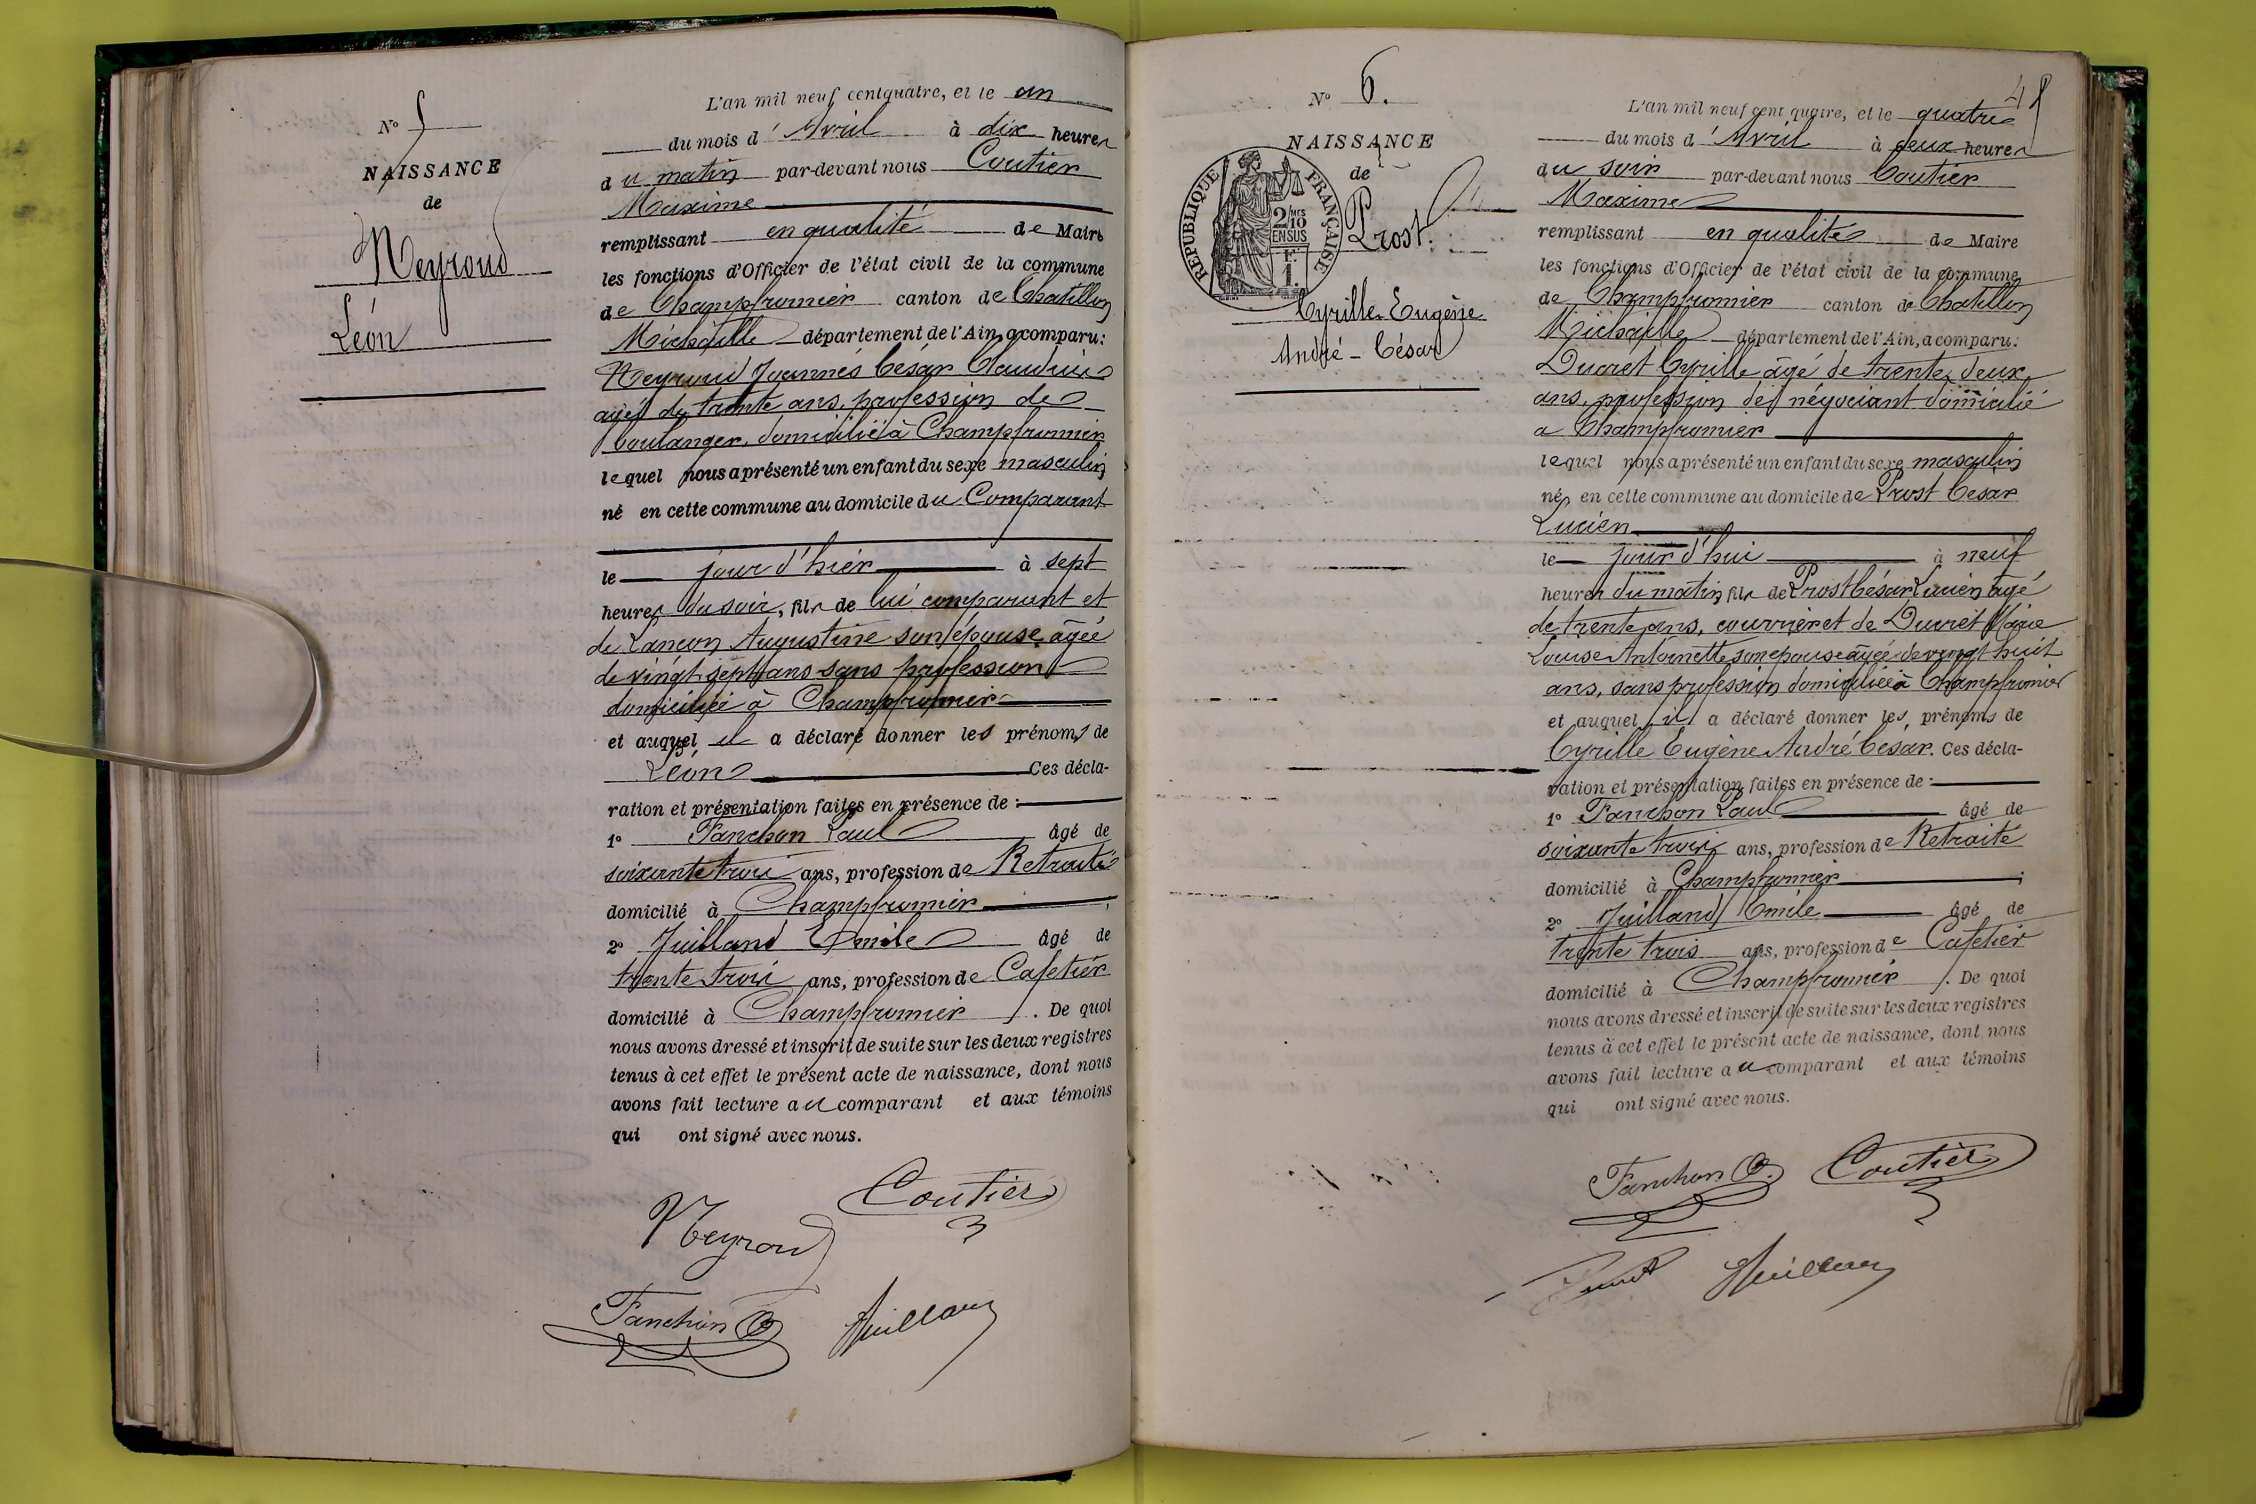 N° 5
NAISSANCE
de
Neyroud
Léon
L'an mil neuf centquatre, et le un
du mois d'Avril à dix heures
du matin par-devant nous Coutier
Maxime
remplissant en qualité de Maire
les fonctions d'Officier de l'état civil de la commune
de Champfromier canton de Chatillon
Michaille département de l'Ain, a comparu:
Neyroud Joannès César Claudius
agé de trente ans, profession de
boulanger, domicilié à Champfromier
lequel nous a présenté un enfant du sexe masculin
né en cette commune au domicile du Comparant
le jour d'hier à sept
heures du soir, fils de lui comparant et
de Lançon Augustine son épouse, âgée
de vingt sept ans sans profession
domiciliée à Champfromier
et auquel il a déclaré donner les prénoms de
Léon Ces décla-
ration et présentation faites en présence de :
1° Fanchon Paul âgé de
soixante trois ans, profession de Retraité
domicilié à Champfromier ;
2° Juilland Emile âgé de
trente trois ans, profession de Cafetier
domicilié à Champfromier . De quoi
nous avons dressé et inscrit de suite sur les deux registres
tenus à cet effet le présent acte de naissance, dont nous
avons fait lecture au comparant et aux témoins
qui ont signé avec nous.
Coutier
Neyroud
Fanchon
Juilland
48
N° 6.
NAISSANCE
de
Prost
RÉPUBLIQUE FRANÇAISE
2/10 MES
EN SUS
F.
1.
Cyrille Eugène
André - César
L'an mil neuf cent quatre, et le quatre
du mois d'Avril à deux heures
du soir par-devant nous Coutier
Maxime
remplissant en qualité de Maire
les fonctions d'Officier de l'état civil de la commune
de Champfromier canton de Chatillon
Michaille département de l'Ain, a comparu:
Ducret Cyrille âgé de trente deux
ans, profession de négociant domicilié
a Champfromier
lequel nous a présenté un enfant du sexe masculin
né en cette commune au domicile de Prost Cesar
Lucien
le jour d'hui à neuf
heures du matin fils de Prost César Lucien âgé
de trente ans, ouvrier et de Ducret Marie
Louise Antoinette son epouse âgée de vingt huit
ans, sans profession domiciliée à Champfromier
et auquel il a déclaré donner les prénoms de
Cyrille Eugène André César. Ces décla-
ration et présentation faites en présence de :
1° Fanchon Paul âgé de
soixante trois ans, profession de Retraité
domicilié à Champfromier ;
2° Juilland Emile âgé de
trente trois ans, profession de Cafetier
domicilié à Champfromier . De quoi
nous avons dressé et inscrit de suite sur les deux registres
tenus à cet effet le présent acte de naissance, dont nous
avons fait lecture au comparant et aux témoins
qui ont signé avec nous.
Fanchon Coutier
Ducret Juilland